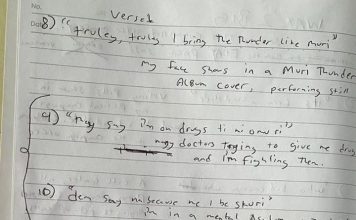 No.
Verse 1
Date 8) "truley, truly I bring the thunder like muri"
my face shows in a Muri Thunder
Album cover, performing still
9) "they say i'm on drugs ti ni
my doctors trying to give me drugs
and I'm fighting them..
10) "den say me I be
i'm in a mental